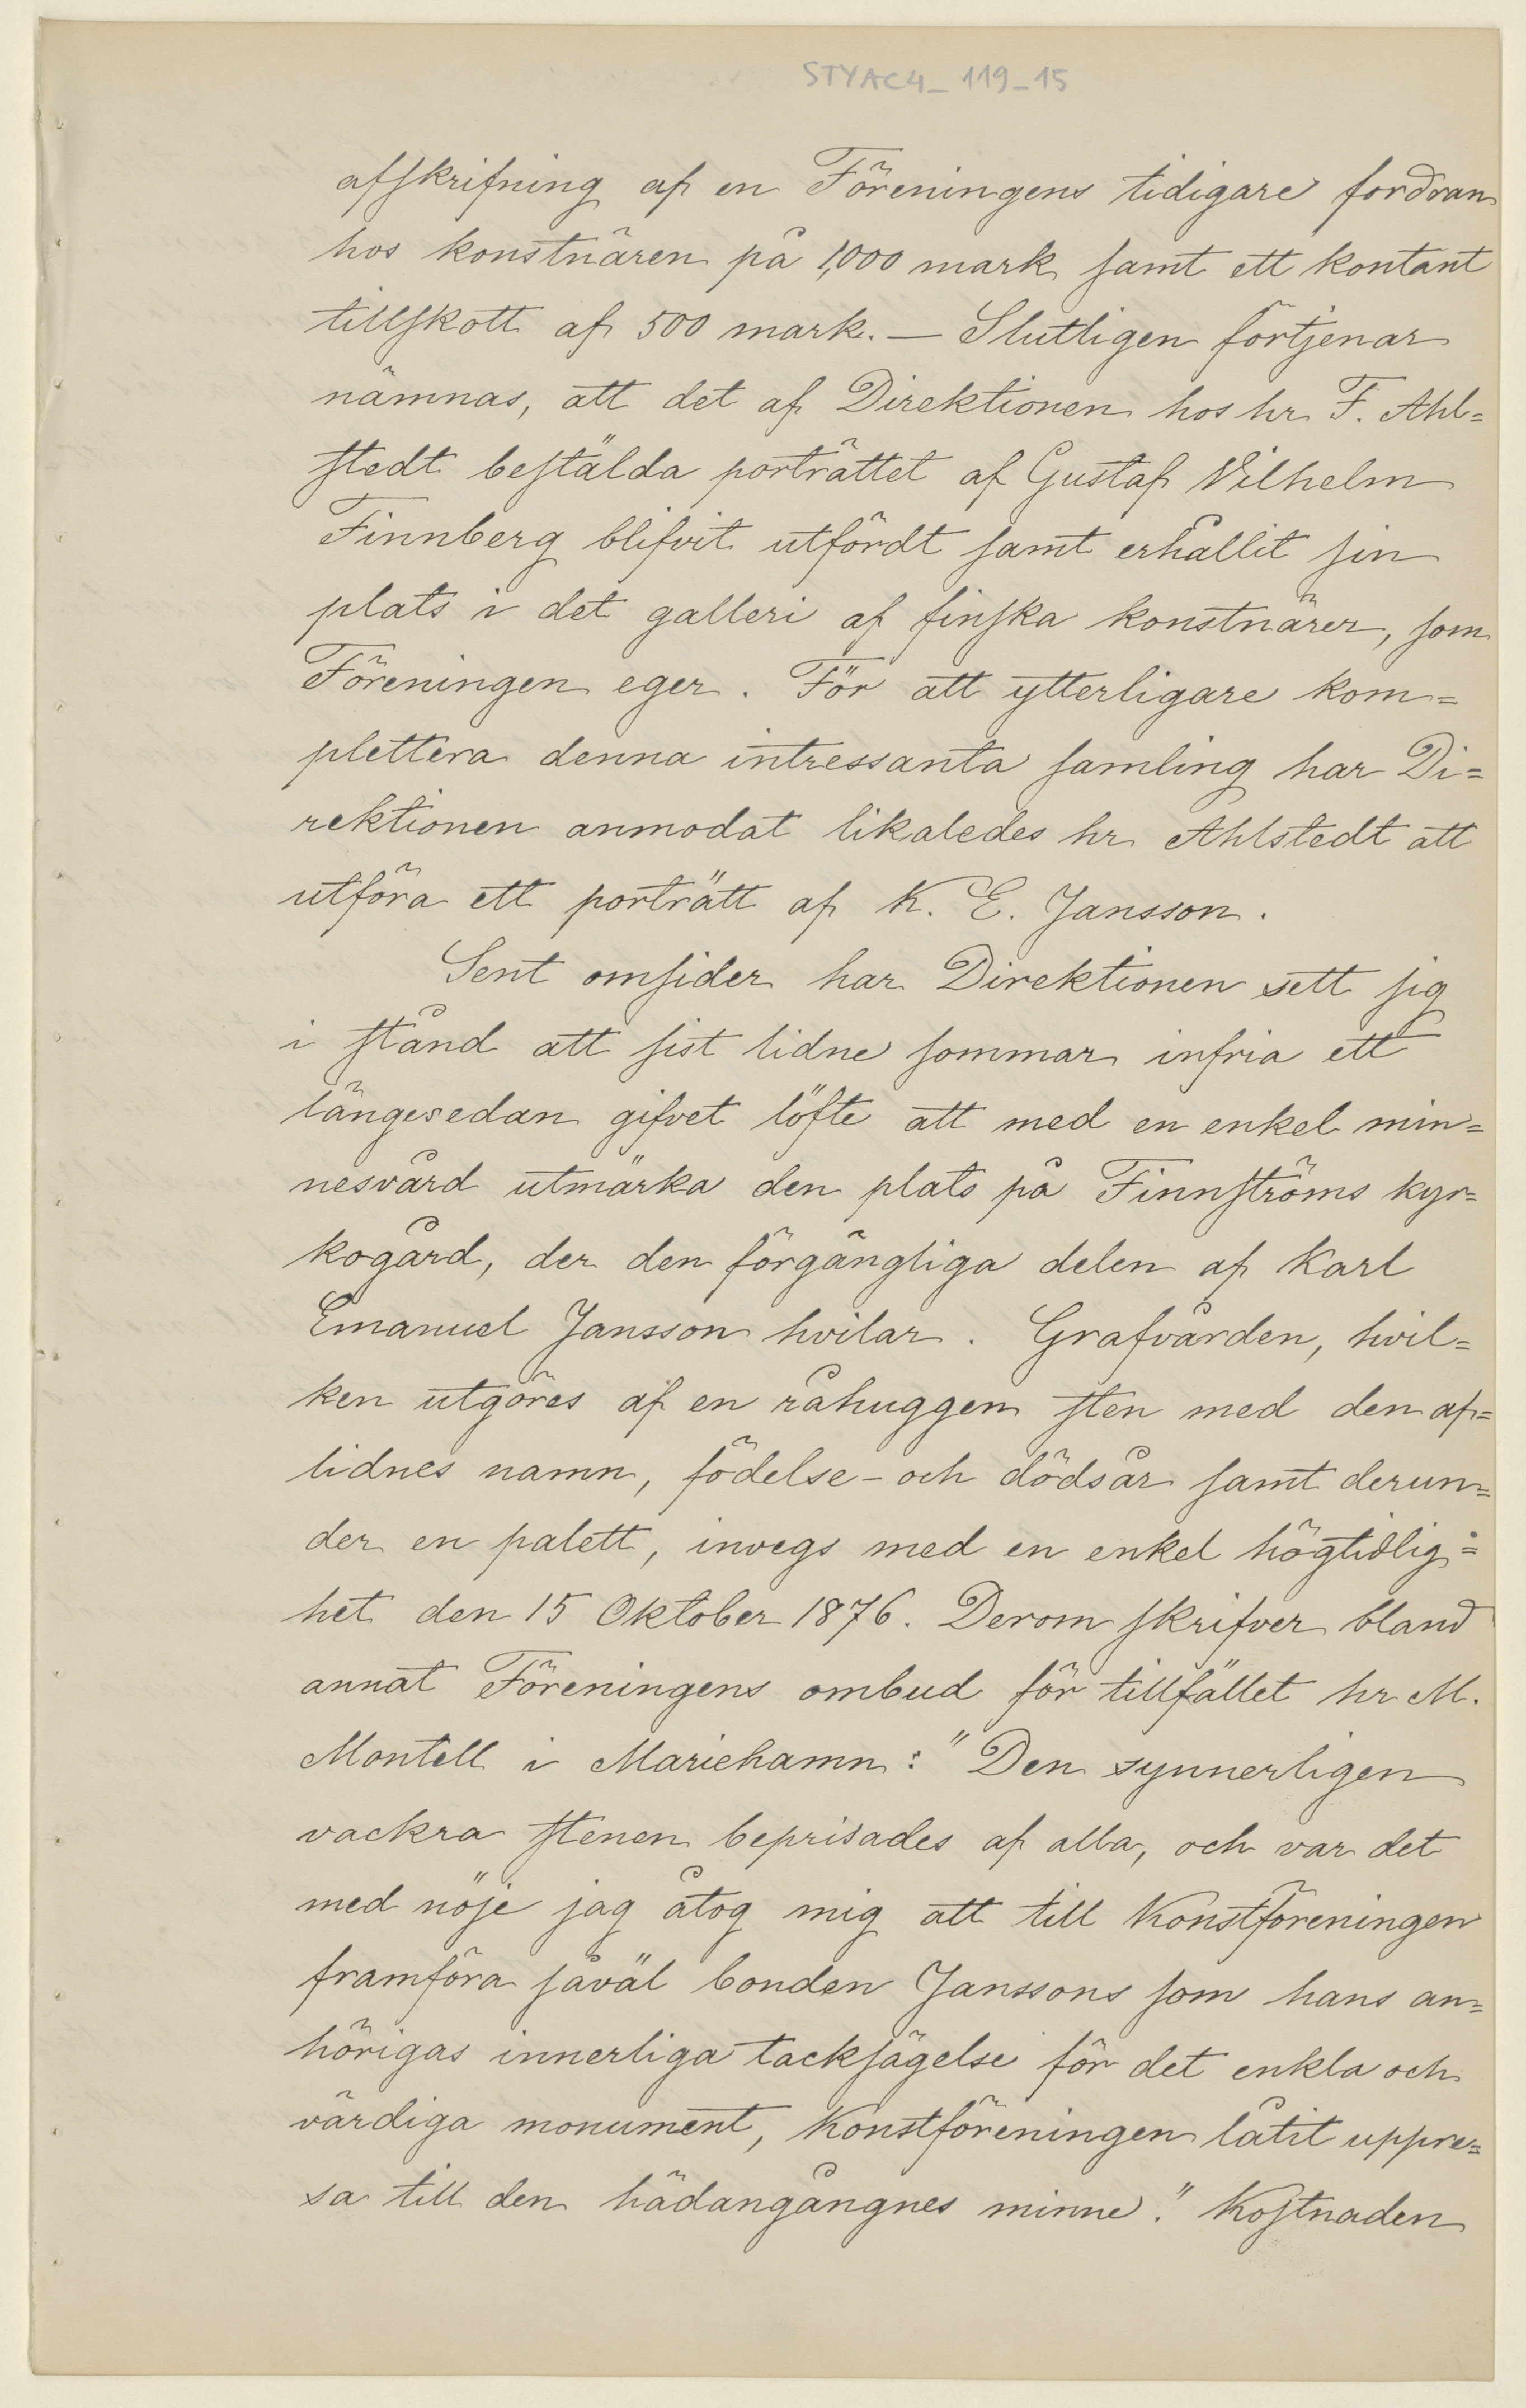 STYAC4_119_15
afskrifning af en Föreningens tidigare fordran
hos konstnären på 1,000 mark samt ett kontant
tillskott af 500 mark. — Slutligen förtjenar
nämnas, att det af Direktionen hos hr F. Ahl=
stedt bestälda porträttet af Gustaf Vilhelm
Finnberg blifvit utfördt samt erhållit sin
plats i det galleri af finska konstnärer, som
Föreningen eger. För att ytterligare kom=
plettera denna intressanta samling har Di=
rektionen anmodat likaledes hr Ahlstedt att
utföra ett porträtt af K. E. Jansson.
Sent omsider har Direktionen sett sig
i stånd att sist lidne sommar infria ett
längesedan gifvet löfte att med en enkel min=
nesvård utmärka den plats på Finnströms kyr=
kogård, der den förgängliga delen af Karl
Emanuel Jansson hvilar. Grafvården, hvil=
ken utgöres af en råhuggen sten med den af=
lidnes namn, födelse- och dödsår samt derun=
der en palett, invegs med en enkel högtidlig=
het den 15 Oktober 1876. Derom skrifver bland
annat Föreningens ombud för tillfället hr M.
Montell i Mariehamn: "Den synnerligen
vackra stenen beprisades af alla, och var det
med nöje jag åtog mig att till Konstföreningen
framföra såväl bonden Janssons som hans an=
hörigas innerliga tacksägelse för det enkla och
värdiga monument, Konstföreningen låtit uppre=
sa till den hädangångnes minne." Kostnaden